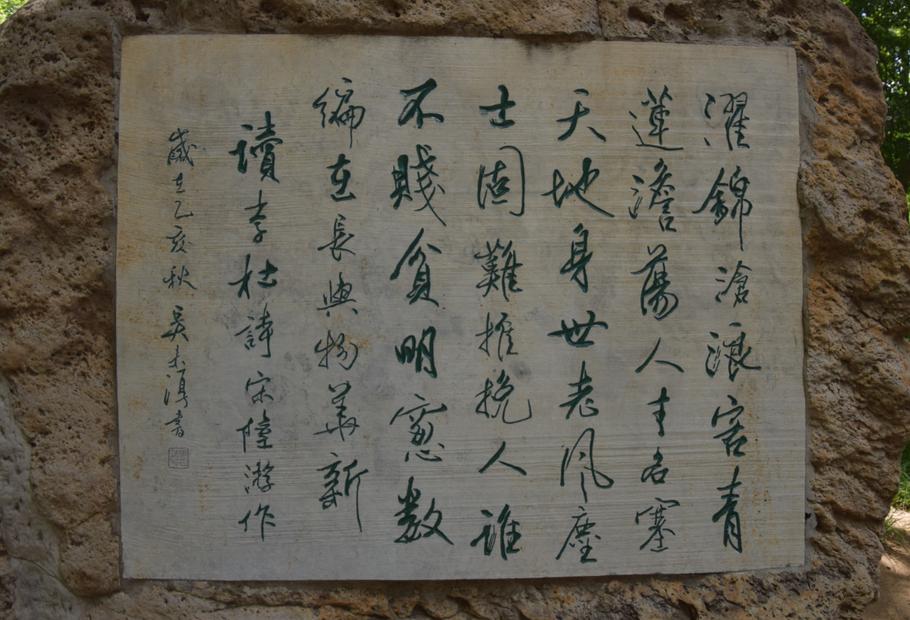 濯錦滄浪客青
蓮澹蕩人才名塞
天地身世老風塵
士固難推挽人誰
不賤貧明窻數
編在長與物華新
讀李杜詩宋陸游作
歲在乙亥秋吳未淳書